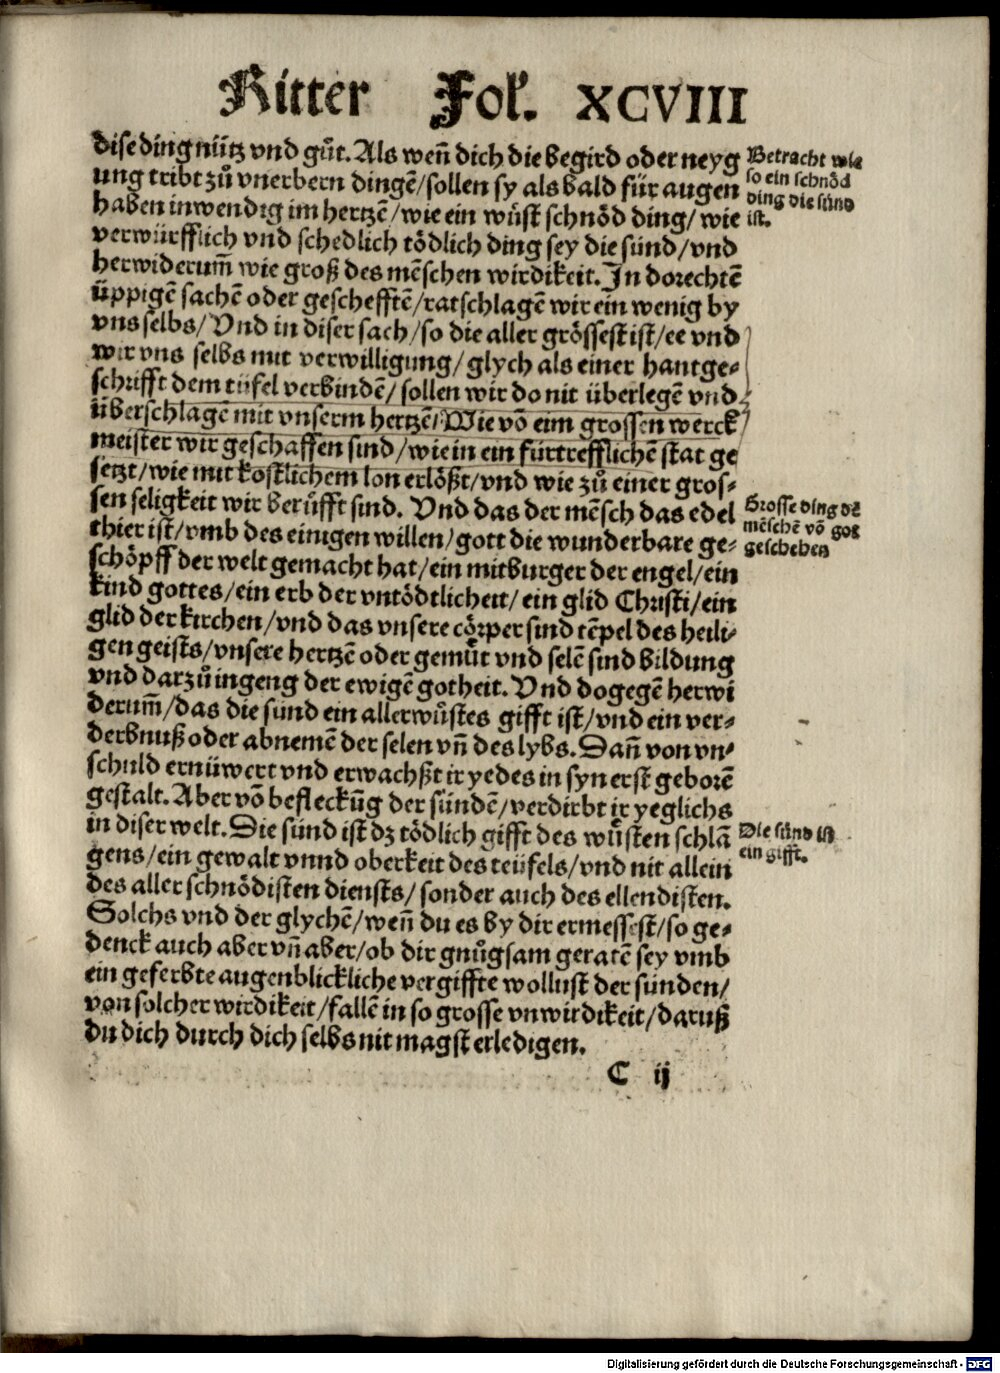 Ritter Fol. XCVIII
dise ding nütz vnd gůt. Als weñ dich die begird oder neyg
ung tribt zů vnerbern dingē/sollen sy als bald für augen
haben inwendig im hertzē/wie ein wůst schnöd ding/wie
verwürfflich vnd schedlich tödlich ding sey die sünd/vnd
herwiderum̃ wie groß des mēschen wirdikeit. In dorechtē
üppigē sachē oder geschefftē/ratschlagē wir ein wenig by
vns selbs/Vnd in diser sach/so die aller grössest ist/ee vnd
wir vns selbs mit verwilligung/glych als einer hantge⸗
schrifft dem tüfel verbindē/sollen wir do nit überlegē vnd
überschlagē mit vnserm hertzē/Wie võ eim grossen werck
meister wir geschaffen sind/wie in ein fürtrefflichē stat ge
setzt/wie mit kostlichem lon erlößt/vnd wie zů einer gros⸗
sen seligkeit wir berůfft sind. Vnd das der mēsch das edel
thier ist/vmb des einigen willen/gott die wunderbare ge⸗
schöpff der welt gemacht hat/ein mitburger der engel/ein
kind gottes/ein erb der vntödtlicheit/ein glid Christi/ein
glid der kirchen/vnd das vnsere cörper sind tēpel des heili⸗
gen geists/vnsere hertzē oder gemůt vnd selē sind bildung
vnd darzů ingeng der ewigē gotheit. Vnd dogegē herwi
derum̃/das die sünd ein allerwůstes gifft ist/vnd ein ver⸗
derbnuß oder abnemē der selen vñ des lybs. Dañ von vn⸗
schuld ernüwert vnd erwachßt ir yedes in syn erst geborē
gestalt. Aber võ befleckũg der sündē/verdirbt ir yeglichs
in diser welt. Die sünd ist dz tödlich gifft des wůsten schlā
gens/ein gewalt vnnd oberkeit des teüfels/vnd nit allein
des aller schnödisten diensts/sonder auch des ellendisten.
Solchs vnd der glychē/weñ du es by dir ermessest/so ge⸗
denck auch aber vñ aber/ob dir gnůgsam geratē sey vmb
ein geferbte augenblickliche vergiffte wollust der sünden/
von solcher wirdikeit/fallē in so grosse vnwirdikeit/daruß
du dich durch dich selbs nit magst erledigen.
C ij
Betracht wie
so ein schnöd
ding die sünd
ist.
Grosse ding dē
mēschē võ got
geschehen
Die sünd ist
ein gifft.
Digitalisierung gefördert durch die Deutsche Forschungsgemeinschaft - DFG